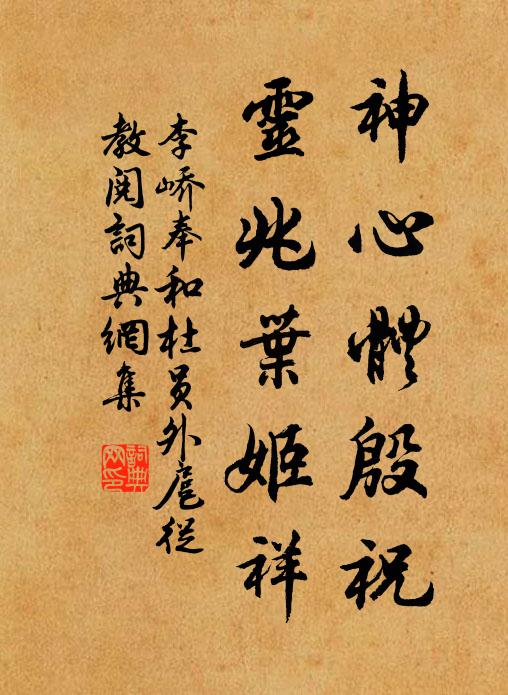 神心體殷祝
靈兆葉姬祥
李嶠奉和杜員外扈從
教閱詞典網集
詞典网印